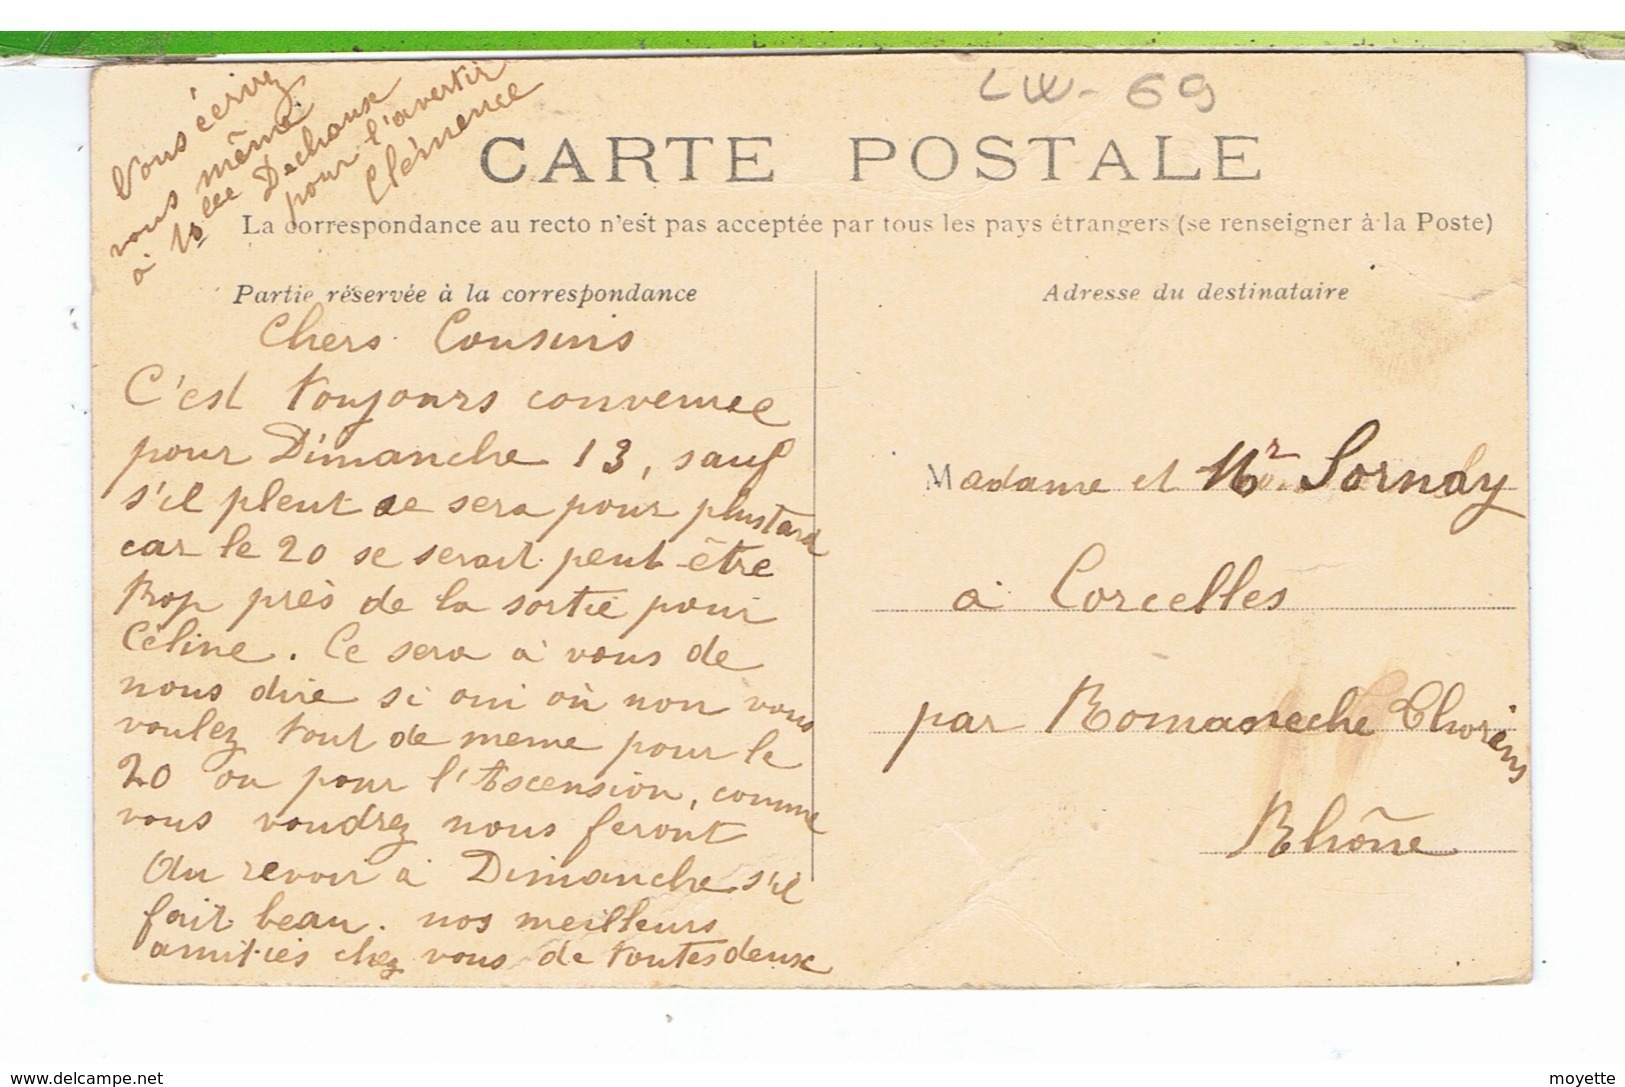 LW - 69
Vous écrivez
vous même
à Mlle Dechaux
pour l'avertir
Clémence
CARTE POSTALE
La correspondance au recto n'est pas acceptée par tous les pays étrangers (se renseigner à la Poste)
Partie réservée à la correspondance
Chers Cousins
C'est toujours convenue
pour Dimanche 13, sauf
s'il pleut ce sera pour plus tard
car le 20 se serait peut-être
trop près de la sortie pour
Céline. Ce sera à vous de
nous dire si oui où non vous
voulez tout de meme pour le
20 ou pour l'Ascension, comme
vous voudrez nous feront
Au revoir à Dimanche s'il
fait beau. nos meilleurs
amitiés chez vous de toutes deux
Adresse du destinataire
Madame et Mr Sornay
à Corcelles
par Romaneche Thorins
Rhône
www.delcampe.net
moyette